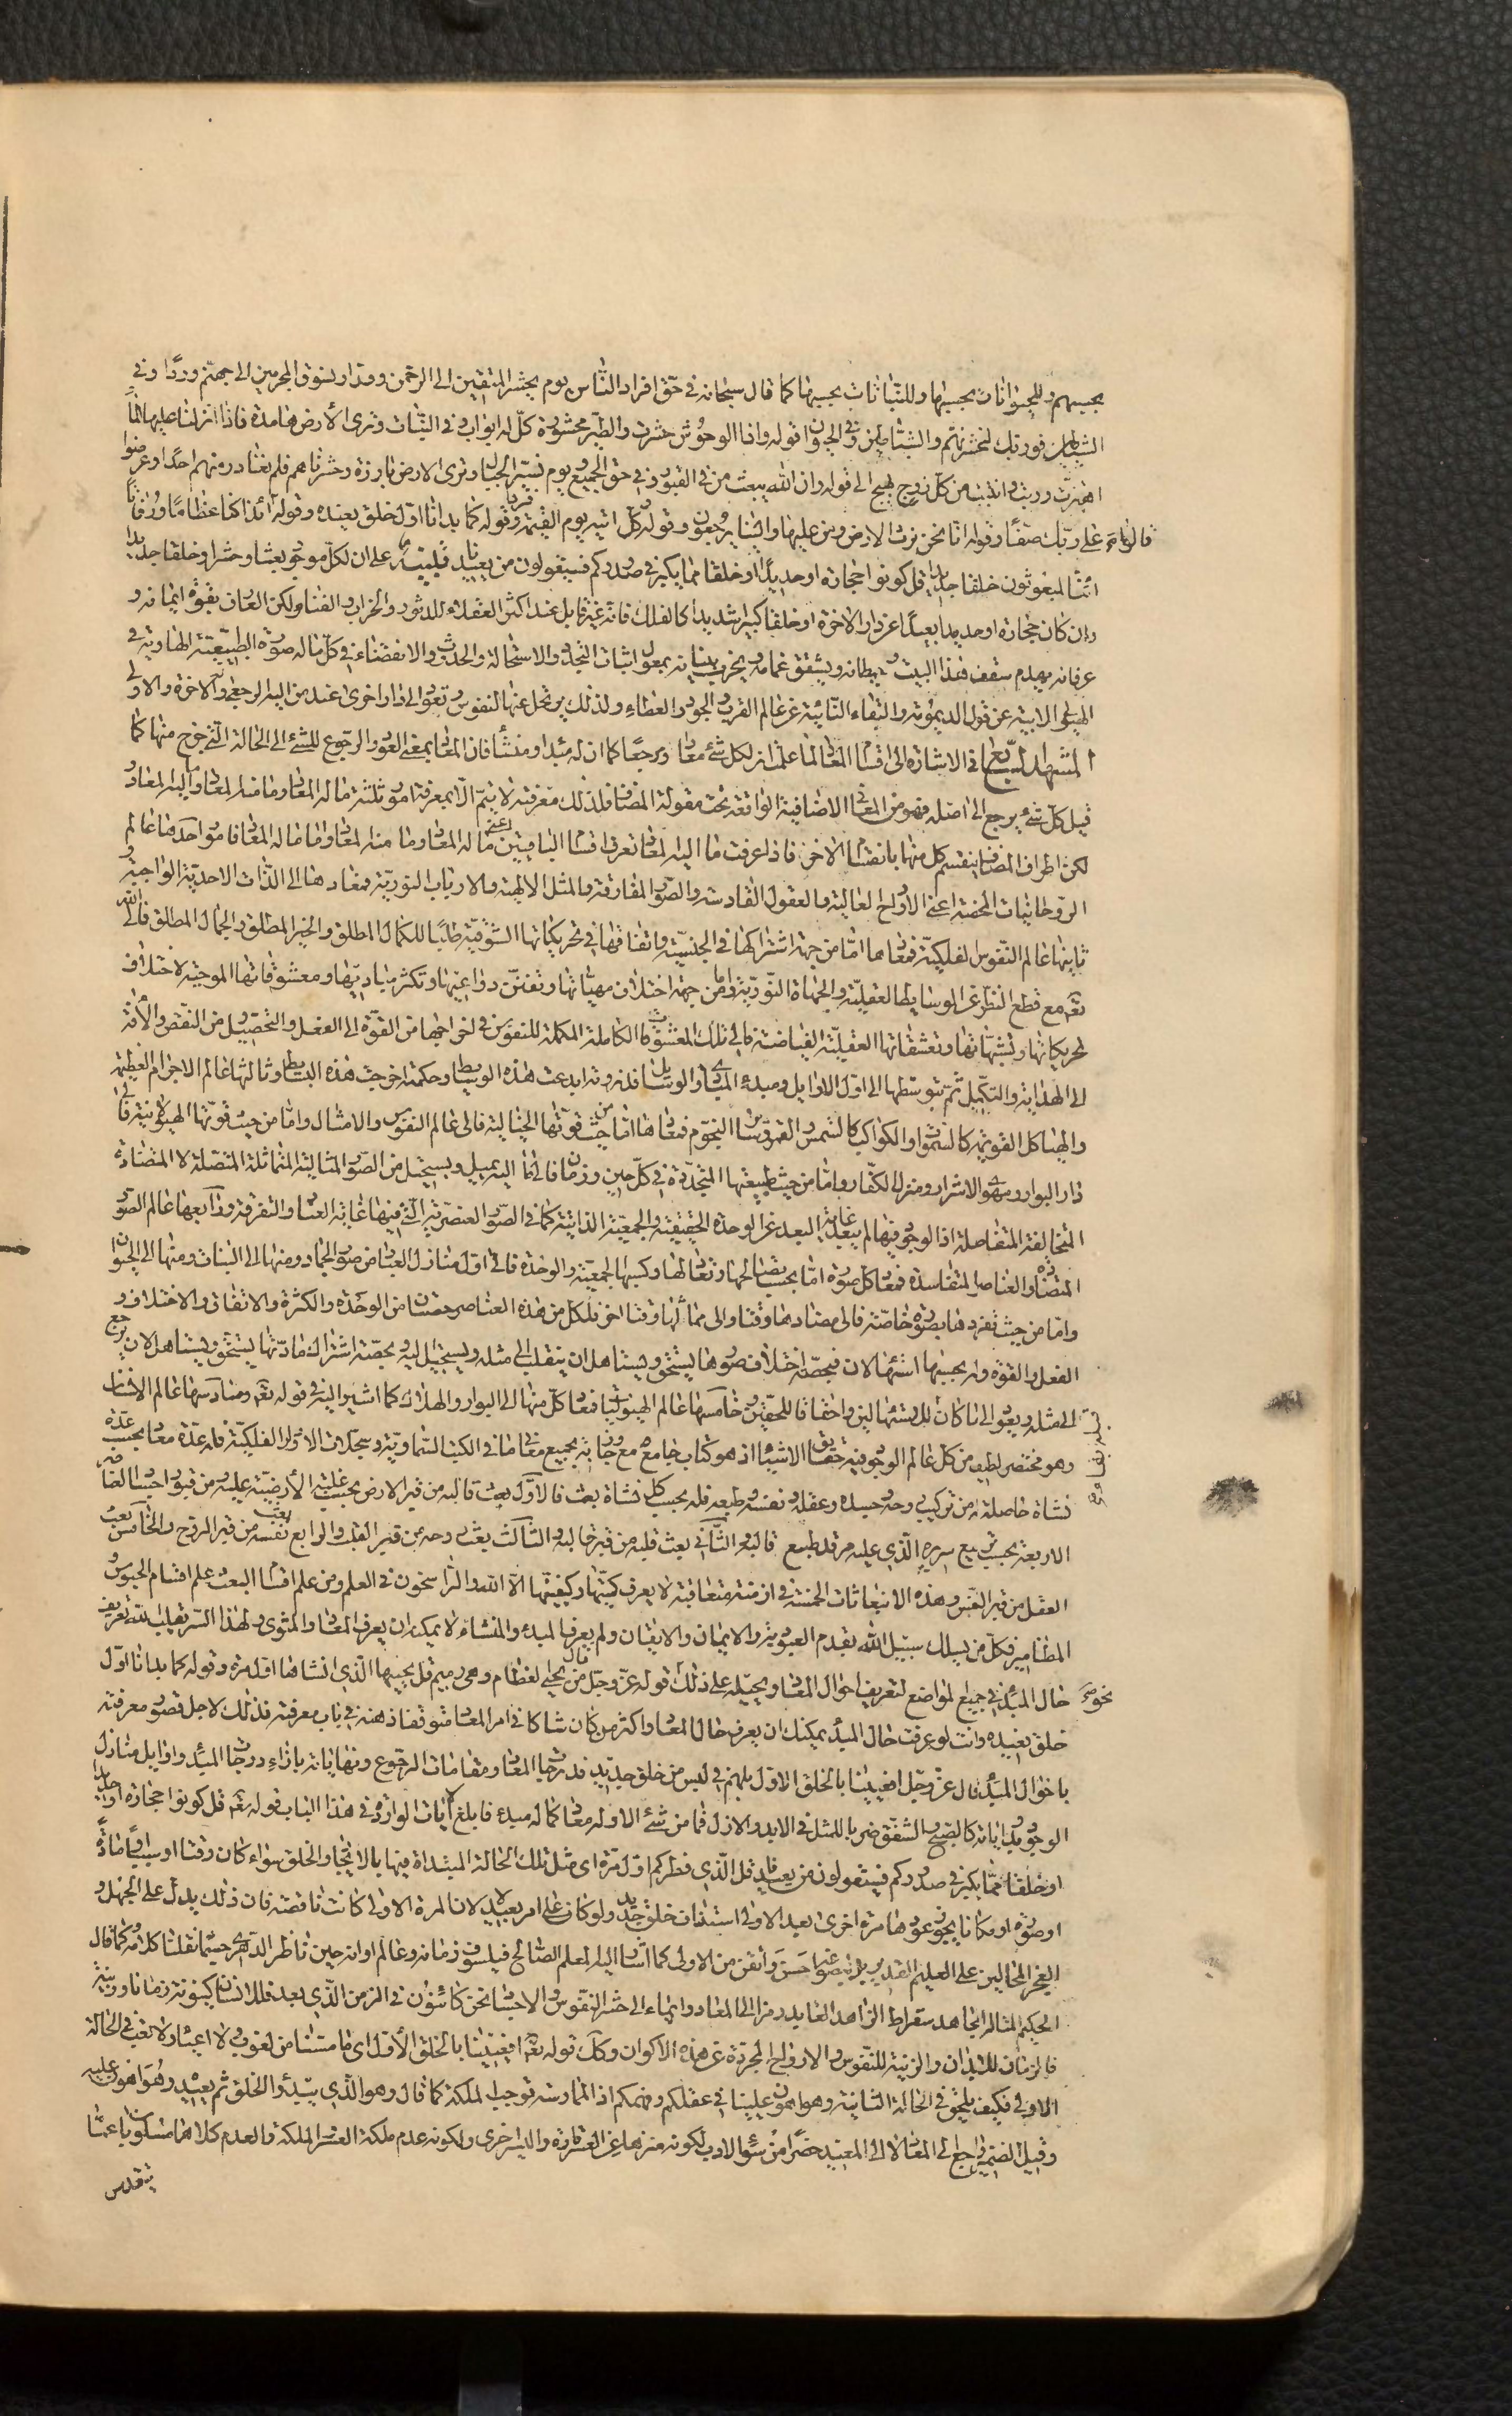 بحسبهم وللحيوانات بحسبها وللنباتات بحسبها كما قال سبحانه في حق افراد الناس يوم نحشر المتقين الى الرحمن وفدا ونسوق المجرمين الى جهنم وردا وفي
الشياطين فوربك لنحشرنهم والشياطين وفي الحيوان قوله واذا الوحوش حشرت والطير محشورة كل له اواب وفي النبات وترى الارض هامدة فاذا انزلنا عليها الماء
اهتزت وربت وانبتت من كل زوج بهيج الى قوله وان الله يبعث من في القبور وفي حق الجميع ويوم نسير الجبال وترى الارض بارزة وحشرناهم فلم نغادر منهم احدا وعرضوا
على ربك صفا وقوله انا نحن نرث الارض ومن عليها والينا يرجعون وقوله كل اتيه يوم القيمة فردا وقوله كما بدانا اول خلق نعيده وقوله أئذا كنا عظاما ورفاتا
ائنا لمبعوثون خلقا جديدا قل كونوا حجارة او حديدا او خلقا مما يكبر في صدوركم فسيقولون من يعيدنا على ان لكل موجود بعثا وحشرا وخلقا جديدا
وان كان حجارة او حديدا بعيدا عن دار الاخرة او خلقا كبيرا شديدا كالفلك فانه غير قابل عند اكثر العقلاء للدثور والخراب والفناء ولكن العارف بقوة ايمانه و
عرفانه يهدم سقف هذا البيت وحيطانه ويشقق غمامه ويخرب بنيانه بمعول اثبات التجدد والاستحالة والحدوث والانقضاء في كل ما له صورة الطبيعية الهاوية في
الهيولى الابية عن قبول الديمومة والبقاء النائية عن عالم القرب والجود والعطاء ولذلك يرتحل عنها النفوس وتعود الى دار اخرى عند من اليه الرجعى وله الاخرة والاولى
المشهد السابع في الاشارة الى اقسام المعاد لما علمت ان لكل شئ معادا ومرجعا كما ان له مبدا ومنشأ فان المعاد بمعنى العود والرجوع للشئ الى الحالة التي خرج منها كما
قيل كل شئ يرجع الى اصله فهو من المعاني الاضافية الواقعة تحت مقولة المضاف فلذلك معرفته لا يتم الا بمعرفة امور ثلثة ما له المعاد وما منه المعاد وما اليه المعاد و
لكن اطراف المضاف ينقسم كل منها بانقسام الاخر فاذا عرفت ما اليه المعاد تعرف اقسام الباقيين اعني ما له المعاد وما منه المعاد واما ما له المعاد فامور احدها عالم
الروحانيات المحضة اعني الارواح العالية والعقول القادسة والصور المفارقة والمثل الالهية والارباب النورية ومعادها الى الذات الاحدية الواجبية و
ثانيها عالم النفوس الفلكية فمعادها اما من جهة اشتراكها في الجنسية واتفاقها في تحريكاتها الشوقية طلبا للكمال المطلق والخير المطلق والجمال المطلق فالى الله
تعه مع قطع النظر عن الوسايط العقلية والجهات النورية واما من جهة اختلاف مهياتها وتفنن دواعيها وتكثر مباديها ومعشوقاتها الموجبة لاختلاف
تحريكاتها وتشبهاتها وتعشقاتها العقلية الفياضة فالى تلك المعشوقات الكاملة المكملة للنفوس في اخراجها من القوة الى الفعل والتحصيل من النقص والافة
الى الهداية والتكميل ثم بتوسطها الى اول الاوايل ومبدء المبادي والوسايل وثالثها عالم الاجرام العظيمة
والهياكل القويمة كالسموات والكواكب كالشمس والقمر وساير النجوم فمعادها اما من حيث قوتها الخيالية فالى عالم النفوس والامثال واما من حيث قوتها الهيولانية فالى
دار البوار ومهوى الاشرار ومنزل الكفار واما من حيث طبيعتها المتجددة في كل حين وزمان فالى ما اليه يميل ويستحيل من الصور المثالية المتماثلة المتصلة لا المتضادة
المتخالفة المتفاصلة اذ الوجود فيها لم يبعد غاية البعد عن الوحدة الحقيقية والجمعية الذاتية كما في الصور العنصرية التي فيها غاية العناد والتفرقة ورابعها عالم الصور
المتضادة والعناصر المتفاسدة فمعاد كل صورة اما بحسب استكمالها وتعاليها وكسبها الجمعية والوحدة فالى اول منازل العباد من صور الجماد ومنها الى النبات ومنها الى الحيوان
واما من حيث تفردها بصورة خاصة فالى مضادها وقتا والى مماثلها وقتا اخر فلكل من هذه العناصر حصتان من الوحدة والكثرة والاتفاق والاختلاف و
الفعل والقوة وله بحسبها استيهالان فبحصة اختلاف صورها يستحق ويستاهل ان ينقلب الى مثله ويستحيل اليه وبحصة اشتراك مادتها يستحق ويستاهل لان يرجع
الى مثله ويعود الى ما كان وخامسها عالم الهيوليات فمعاد كل منها الى البوار والهلاك كما اشير اليه في قوله تعه وسادسها عالم الانسان
وهو مختصر لطيف من كل عالم الوجود فيه حقايق الاشياء اذ هو كتاب جامع مع وجازته بجميع معاني ما في الكتب السماوية وسجلات الالواح الفلكية فله عدة معاد بحسب عدة
نشاة حاصلة له من تركيب روحه وجسده وعقله ونفسه وطبعه فله بحسب كل نشاة بعث فالاول بعث قالبه من قبر الارض بحسب غلبة الارضية عليه من قبور اجساد العناصر
الاربعة بحسب تربيع سريره الذي عليه مرقد طبيعة قالبه والثاني بعث قلبه من قبر قالبه والثالث بعث روحه من قبر القلب والرابع بعث نفسه من قبر الروح والخامس بعث
العقل من قبر النفس وهذه الانبعاثات الخمسة في ازمنة متعاقبة لا يعرف كميتها وكيفيتها الا الله والراسخون في العلم ومن علم اقسام البعث علم اقسام الحبوس و
المطامير فكل من يسلك سبيل الله بقدم العبودية والايمان والايقان ولم يعرف المبدء والمنشاء لا يمكنه ان يعرف المعاد والمثوى ولهذا السر
حال المبدأ في جميع المواضع لتعريف احوال المعاد ويحيله على ذلك قوله عز وجل من يحيي العظام وهي رميم قل يحييها الذي انشاها اول مرة وقوله كما بدانا اول
خلق نعيده وانت لو عرفت حال المبدأ يمكنك ان يعرف حال المعاد واكثر من كان شاكا في امر المعاد متوقفا ذهنه في باب معرفته فذلك لاجل قصور معرفته
باحوال المبدأ قال عز وجل افعيينا بالخلق الاول بل هم في لبس من خلق جديد فدرجات المعاد ومقامات الرجوع ونهاياته بازاء درجات المبدأ واوايل منازل
الوجود وبداياته كالصبح والشفق ضربا للمثل في الابد والازل فما من شئ الا وله معاد كما له مبدء فابلغ الايات الواردة في هذا الباب قوله تعه قل كونوا حجارة او حديدا
او خلقا مما يكبر في صدوركم فسيقولون من يعيدنا قل الذي فطركم اول مرة اي مثل تلك الحالة المبتداة فيها بالايجاد والخلق سواء كان وقتا او سببا او مادة
او صورة او مكانا يجوز عودها مرة اخرى بعيد الاولى استيناف خلق جديد ولو كان على امر بعيد لا لان المرة الاولى كانت ناقصة فان ذلك يدل على الجهل و
العجز المحالين على العليم القدير احسن واتقن من الاولى كما اشار اليه المعلم الصالح فيلسوف زمانه وعالم اوانه حين ناظر الدهري حسبما نقلنا كلامه كما قال
الحكيم المتاله المجاهد سقراط الزاهد العابد رمزا الى المعاد وايماء الى حشر النفوس والاجساد نحن كائنون في الزمن الذي بعد فللانسان كينونة زمانا ورتبة
فالزمان للابدان والرتبة للنفوس والارواح المجردة عن هذه الاكوان وكك قوله تعه افعيينا بالخلق الاول اي ما مسنا من لغوب ولا اعياء ولا تعب في الحالة
الاولى فكيف يلحق في الحالة الثانية وهو اهون علينا في عقلكم وفهمكم اذ الممارسة توجب الملكة كما قال وهو الذي يبدؤ الخلق ثم يعيده وهو اهون عليه
وقيل الضمير راجع الى المعاد لا الى المعيد حضرا من سوء الادب لكونه منزها عن العسر تارة واليسر اخرى ولكونه عدم ملكة العسر الملكة والعدم كلاهما مسلوبا عنا
يتقدس